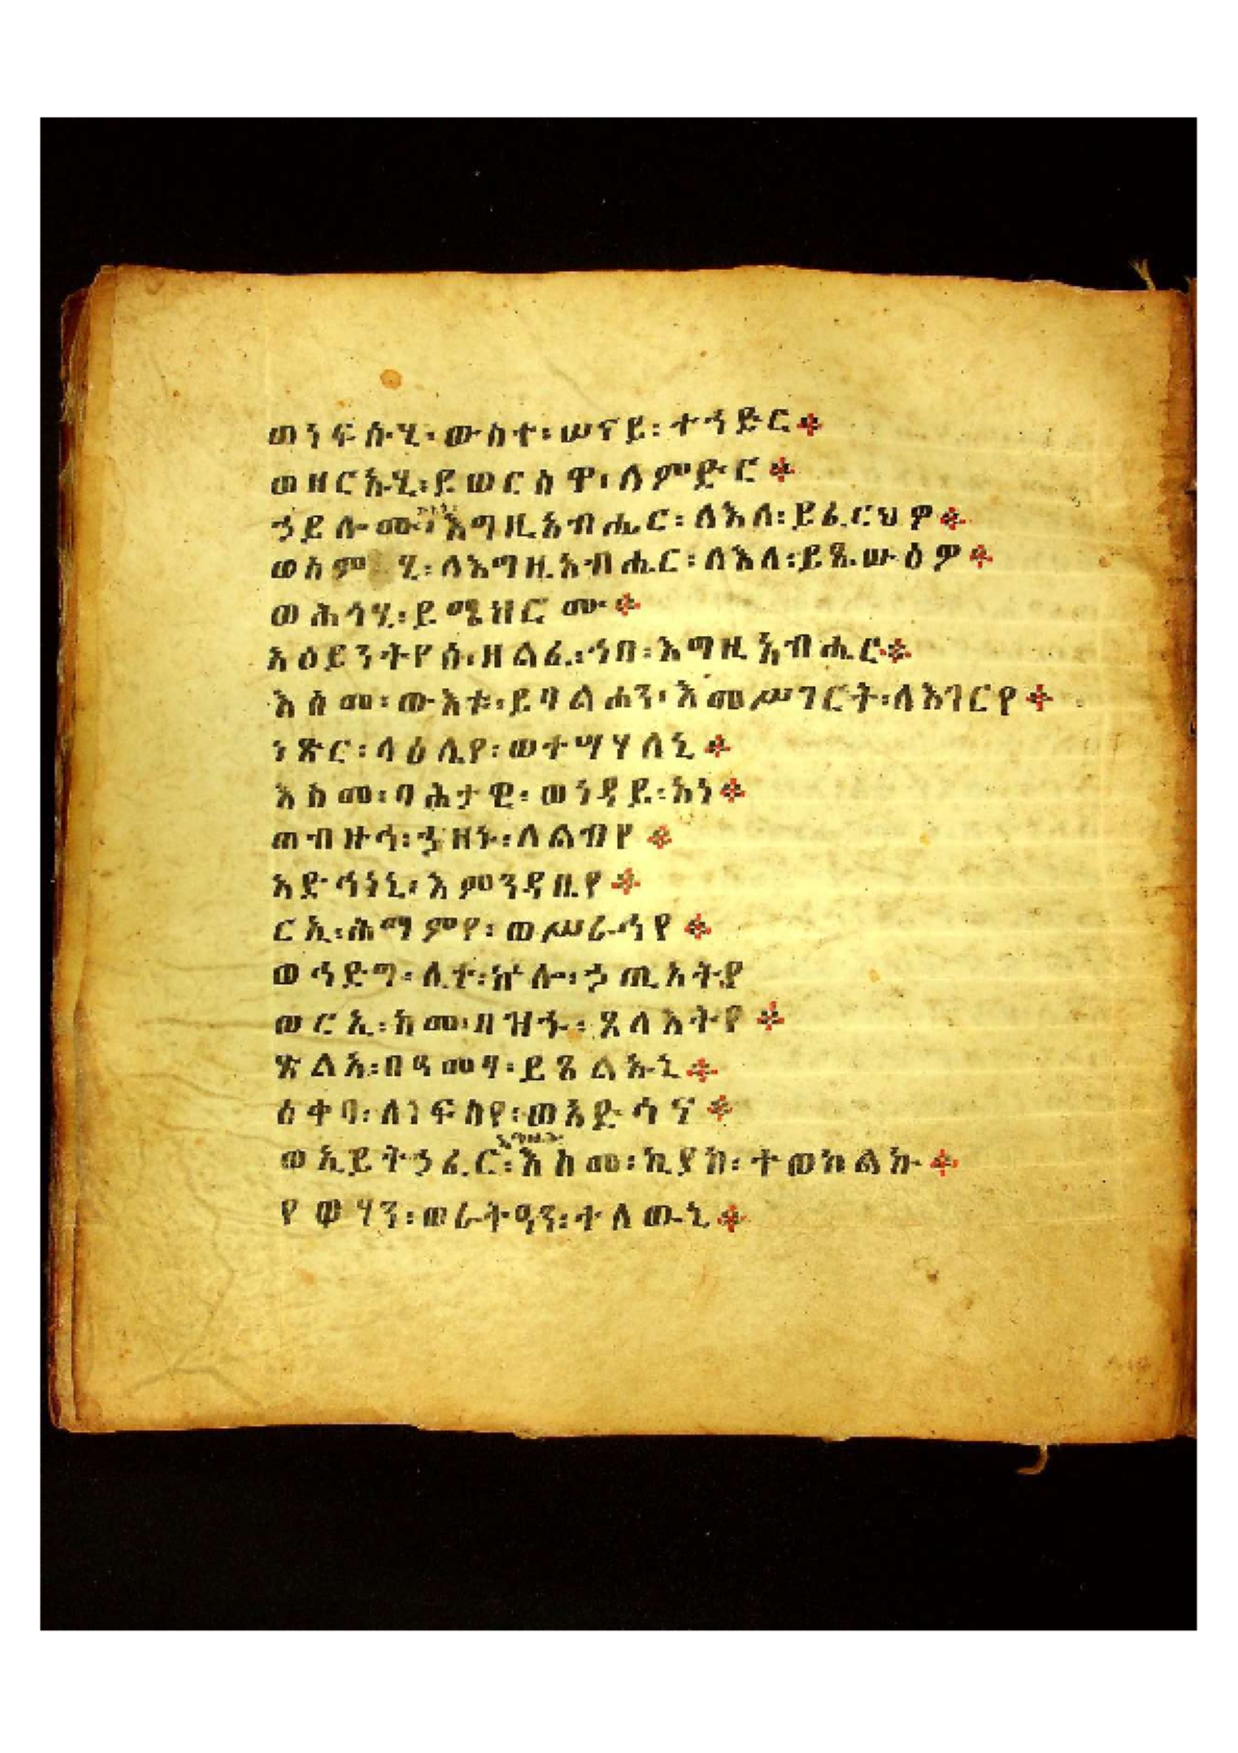 ወነፍሱሂ፡ውስተ፡ሠናይ፡ተኀድር፨
ወዘርኡሂ፡ይወርስዋ፡ለምድር፨
ኀይሎሙ፡እግዚአብሔር፡ለእለ፡ይፈርህዎ፨
ወስም ሂ፡ለእግዚአብሔር፡ለእለ፡ይጼውዕዎ፨
ወሕጎሂ፡ይሜህሮሙ፨
አዕይንትየሰ፡ዘልፈ፡ኀበ፡እግዚአብሔር፨
እስመ፡ውእቱ፡ይባልሐን፡እመሥገርት፡ለእገርየ፨
ነጽር፡ላዕሌየ፡ወተሣሃለኒ፨
እስመ፡ባሕታዊ፡ወነዳይ፡አነ፨
ወብዙኅ፡ኃዘኑ፡ለልብየ፨
አድኅነኒ፡እምንዳቤየ፨
ርኢ፡ሕማምየ፡ወሥራኅየ፨
ወኅድግ፡ሊተ፡ኵሎ፡ኃጢአትየ
ወርኢ፡ከመ፡በዝኁ፡ጸላእትየ፨
ጽልአ፡በዓመፃ፡ይጸልኡኒ፨
ዕቀባ፡ለነፍስየ፡ወአድኅና፨
ወኢይትኃፈር፡እስመ፡ኪያከ፡ተወከልኩ፨
የዋሃን፡ወራትዓን፡ተለውኒ፨